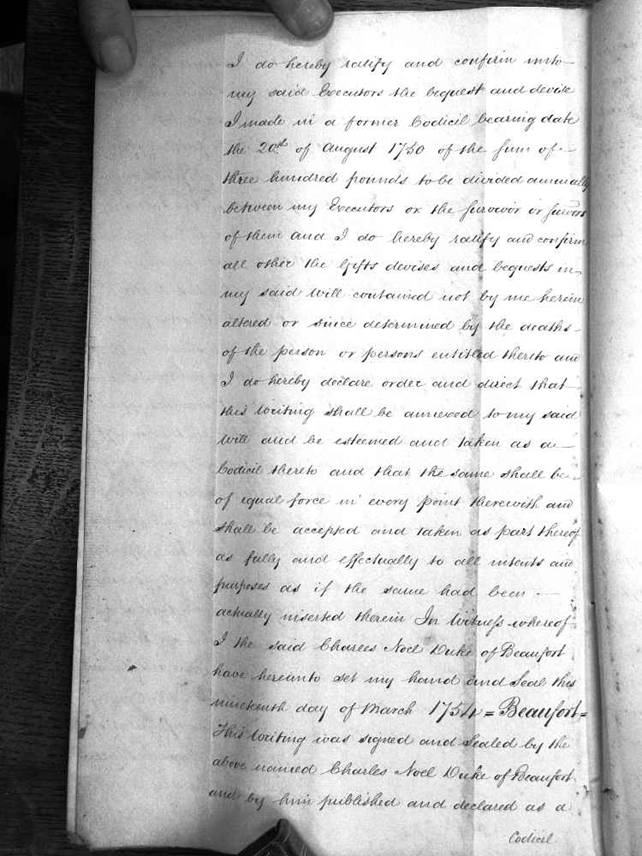 I do hereby ratify and confirm unto
my said Executors the bequest and devise
I made in a former Codicil bearing date
the 20th of August 1750 of the sum of
three hundred pounds to be divided annually
between my Executors or the survivor or survivors
of them and I do hereby ratify and confirm
all other the Gifts devises and bequests in
my said Will contained not by me herein
altered or since determined by the deaths
of the person or persons entitled thereto and
I do hereby declare order and direct that
this Writing shall be annexed to my said
Will and be esteemed and taken as a
Codicil thereto and that the same shall be
of equal force in every point therewith and
shall be accepted and taken as part thereof
as fully and effectually to all intents and
purposes as if the same had been
actually inserted therein In Witness whereof
I the said Charles Noel Duke of Beaufort
have hereunto set my hand and Seal this
nineteenth day of March 1754 = Beaufort =
This Writing was signed and Sealed by the
above named Charles Noel Duke of Beaufort
and by him published and declared as a
Codicil